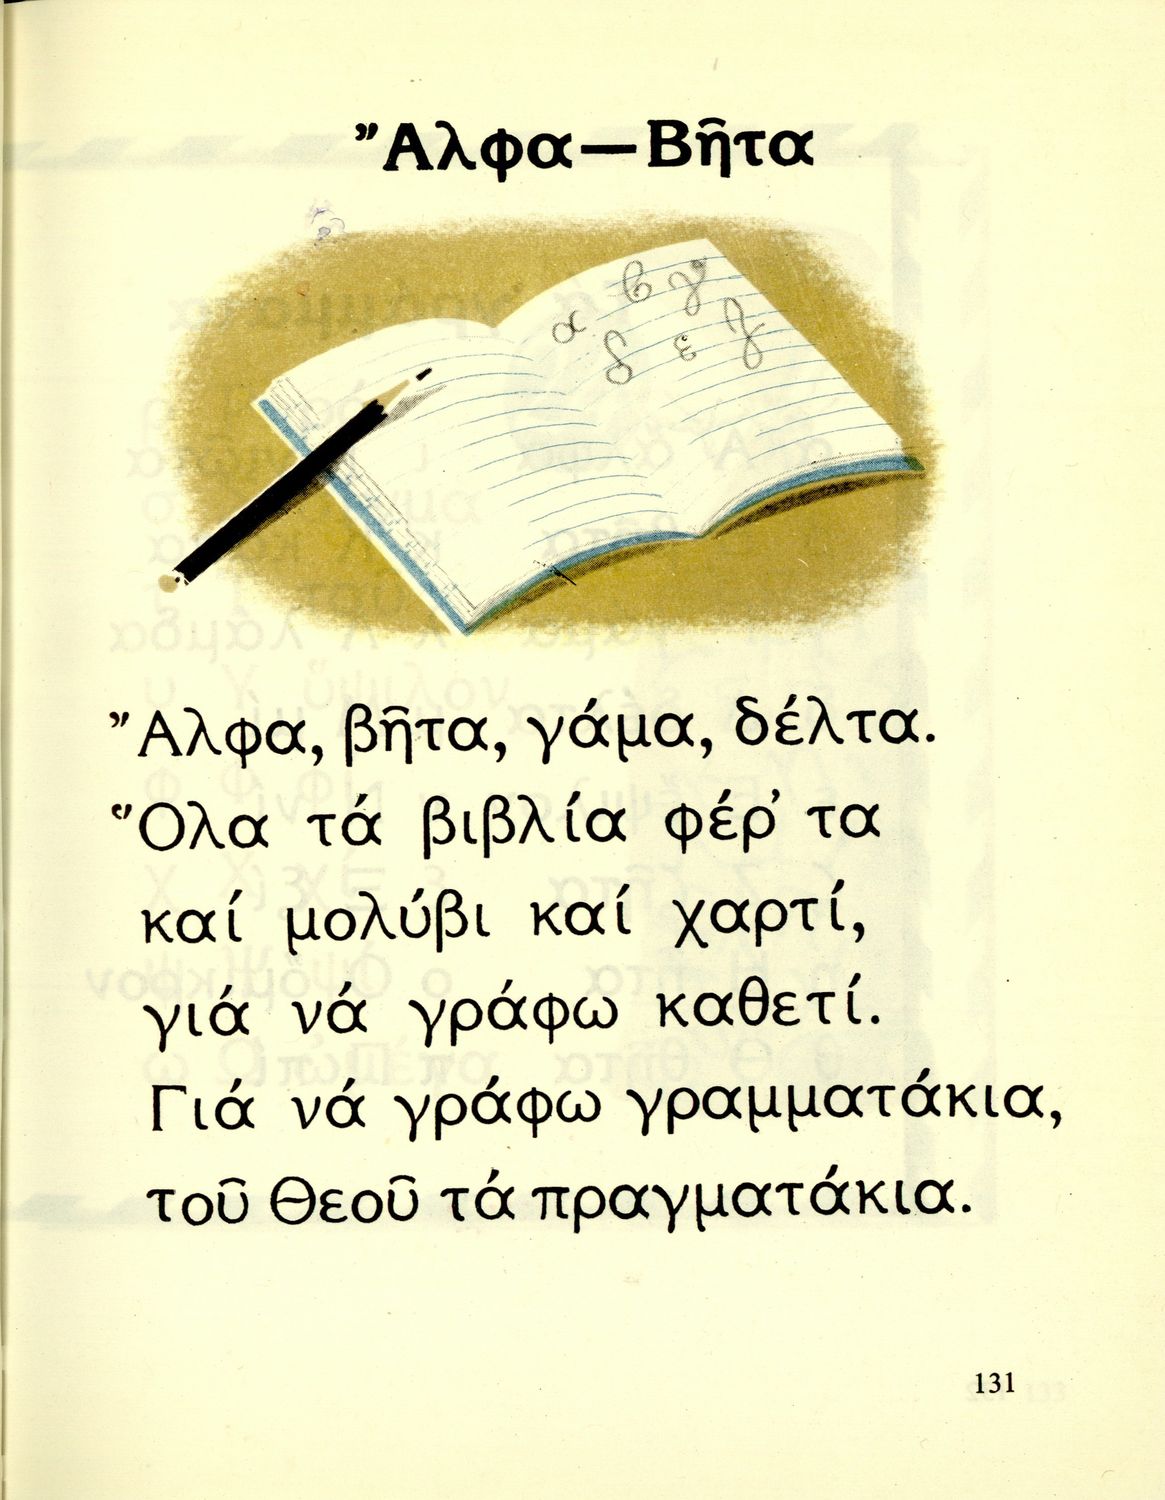 Ἄλφα—Βῆτα
α β γ
δ ε ζ
Ἄλφα, βῆτα, γάμα, δέλτα.
Ὅλα τά βιβλία φέρ' τα
καί μολύβι καί χαρτί,
γιά νά γράφω καθετί.
Γιά νά γράφω γραμματάκια,
τοῦ Θεοῦ τά πραγματάκια.
131